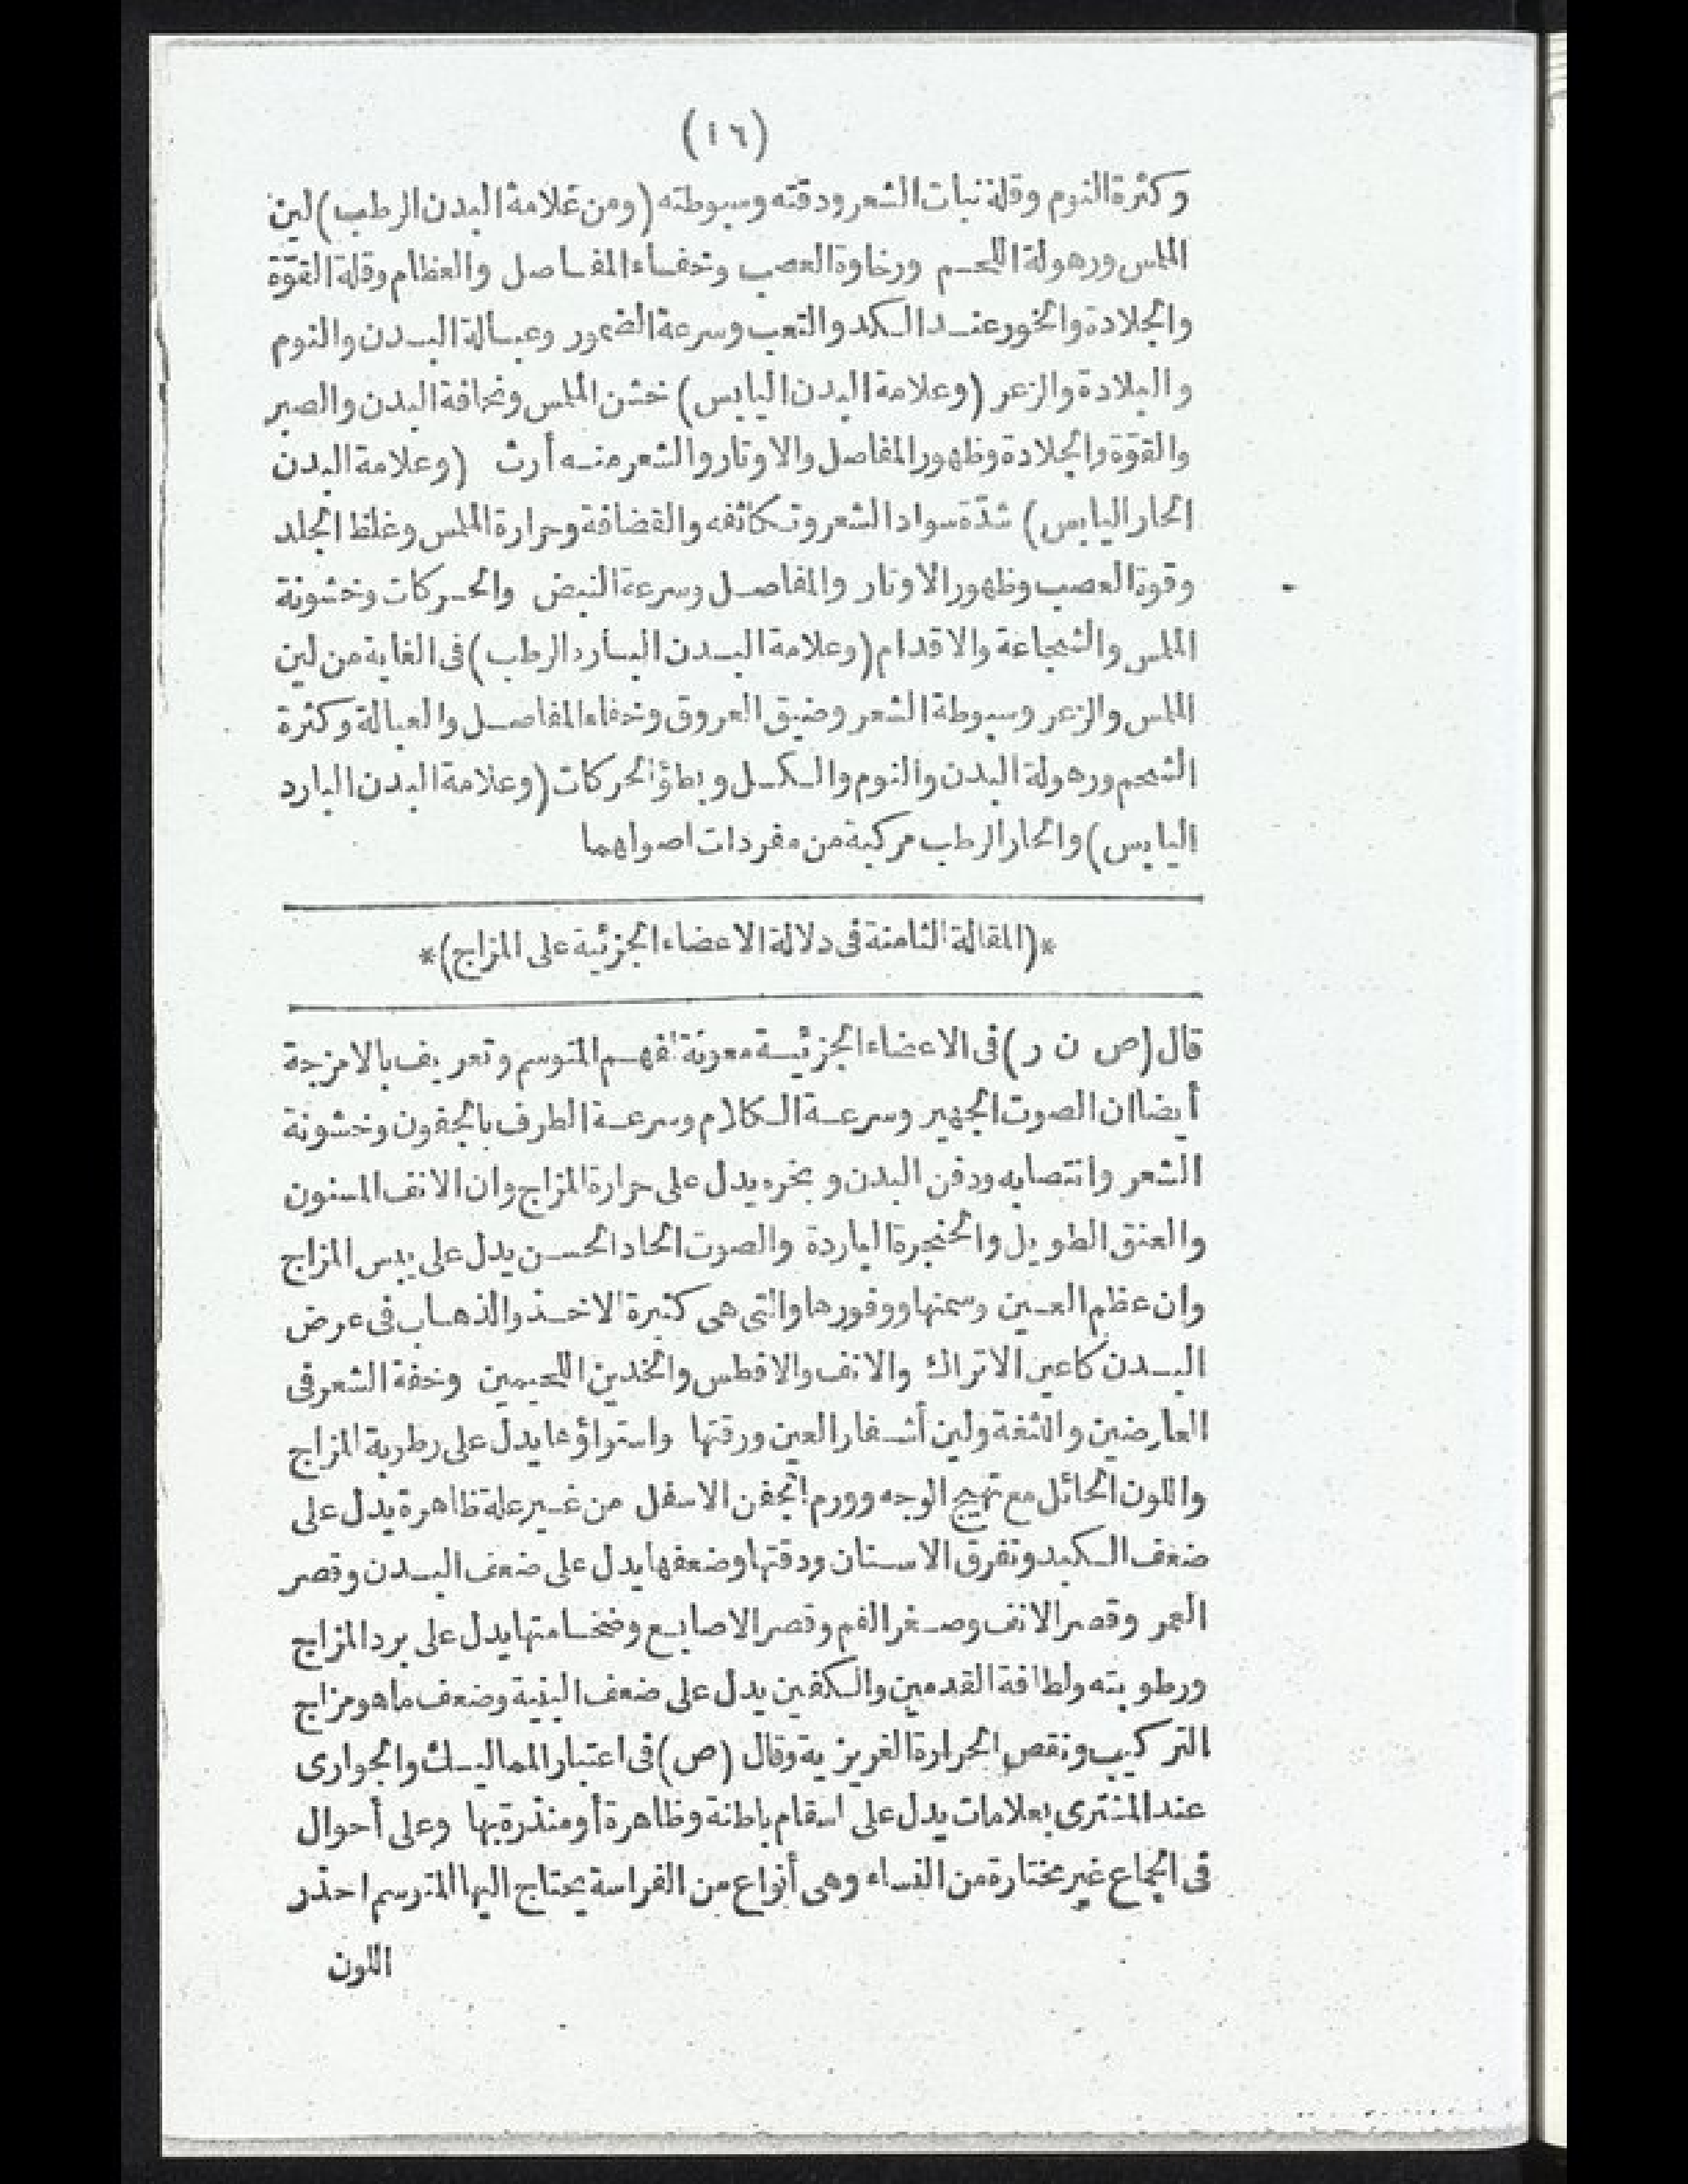 (١٦)
وكثرة النوم وقلة نبات الشعر ودقته وسبوطته (ومن علامة البدن الرطب) لين
الملس ورهولة اللحم ورخاوة العصب وخفاء المفاصل والعظام وقلة القوّة
والجلادة والخور عند الكد والتعب وسرعة الضمور وعبالة البدن والنوم
والبلادة والزعر (وعلامة البدن اليابس) خشن الملس ونحافة البدن والصبر
والقوّة والجلادة وظهور المفاصل والاوتار والشعر منه أرث (وعلامة البدن
الحار اليابس) شدّة سواد الشعر وتكاثفه والقضافة وحرارة الملس وغلظ الجلد
وقوة العصب وظهور الاوتار والمفاصل وسرعة النبض والحركات وخشونة
الملس والشجاعة والاقدام (وعلامة البدن البارد الرطب) فى الغاية من لين
الملس والزعر وسبوطة الشعر وضيق العروق وخفاء المفاصل والعبالة وكثرة
الشحم ورهولة البدن والنوم والكسل وبطؤ الحركات (وعلامة البدن البارد
اليابس) والحار الرطب مركبة من مفردات اصولهما
*(المقالة الثامنة فى دلالة الاعضاء الجزئية على المزاج)*
قال (ص ن ر) فى الاعضاء الجزئية معونة لفهم المتوسم وتعريف بالامزجة
أيضا ان الصوت الجهير وسرعة الكلام وسرعة الطرف بالجفون وخشونة
الشعر وانتصابه ودفن البدن وبخره يدل على حرارة المزاج وان الانف المسنون
والعنق الطويل والحنجرة الباردة والصوت الحاد الحسن يدل على يبس المزاج
وان عظم العين وسمنها ووفورها والتى هى كثيرة الاخذ والذهاب فى عرض
البدن كاعين الاتراك والانف والافطس والخدين اللحيمين وخفة الشعر فى
العارضين واللثغة ولين أشفار العين ورقتها واستواؤها يدل على رطوبة المزاج
واللون الحائل مع تهيج الوجه وورم الجفن الاسفل من غير علة ظاهرة يدل على
ضعف الكبد وتفرق الاسنان ودقتها وضعفها يدل على ضعف البدن وقصر
العمر وقصر الانف وصغر الفم وقصر الاصابع وضخامتها يدل على برد المزاج
ورطوبته ولطافة القدمين والكفين يدل على ضعف البنية وضعف ما هو مزاج
التركيب ونقص الحرارة الغريزية وقال (ص) فى اعتبار المماليك والجوارى
عند المشترى بعلامات يدل على اسقام باطنة وظاهرة أو منذرة بها وعلى أحوال
فى الجماع غير مختارة من النساء وهى أنواع من الفراسة يحتاج اليها المترسم احذر
اللون